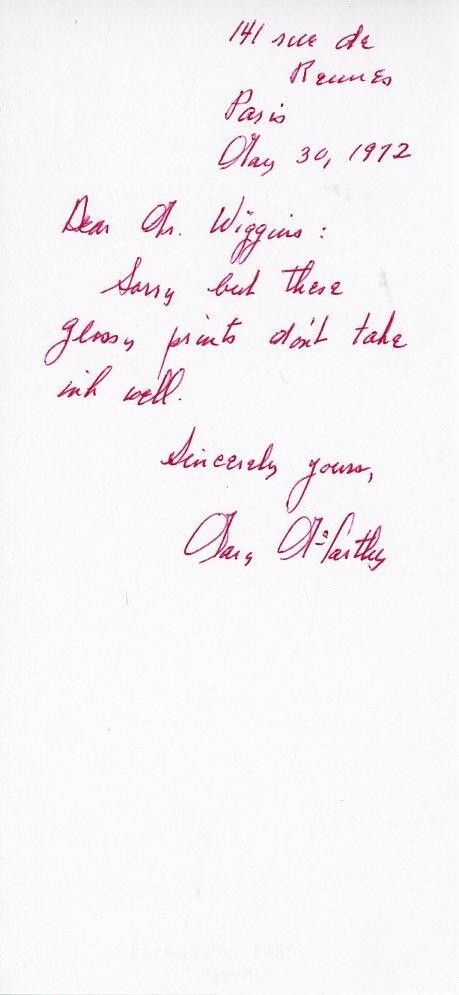 141 rue de
Rennes
Paris
May 30, 1972
Dear Mr. Wiggins :
Sorry but these
glossy prints don't take
ink well.
Sincerely yours,
Mary McCarthy